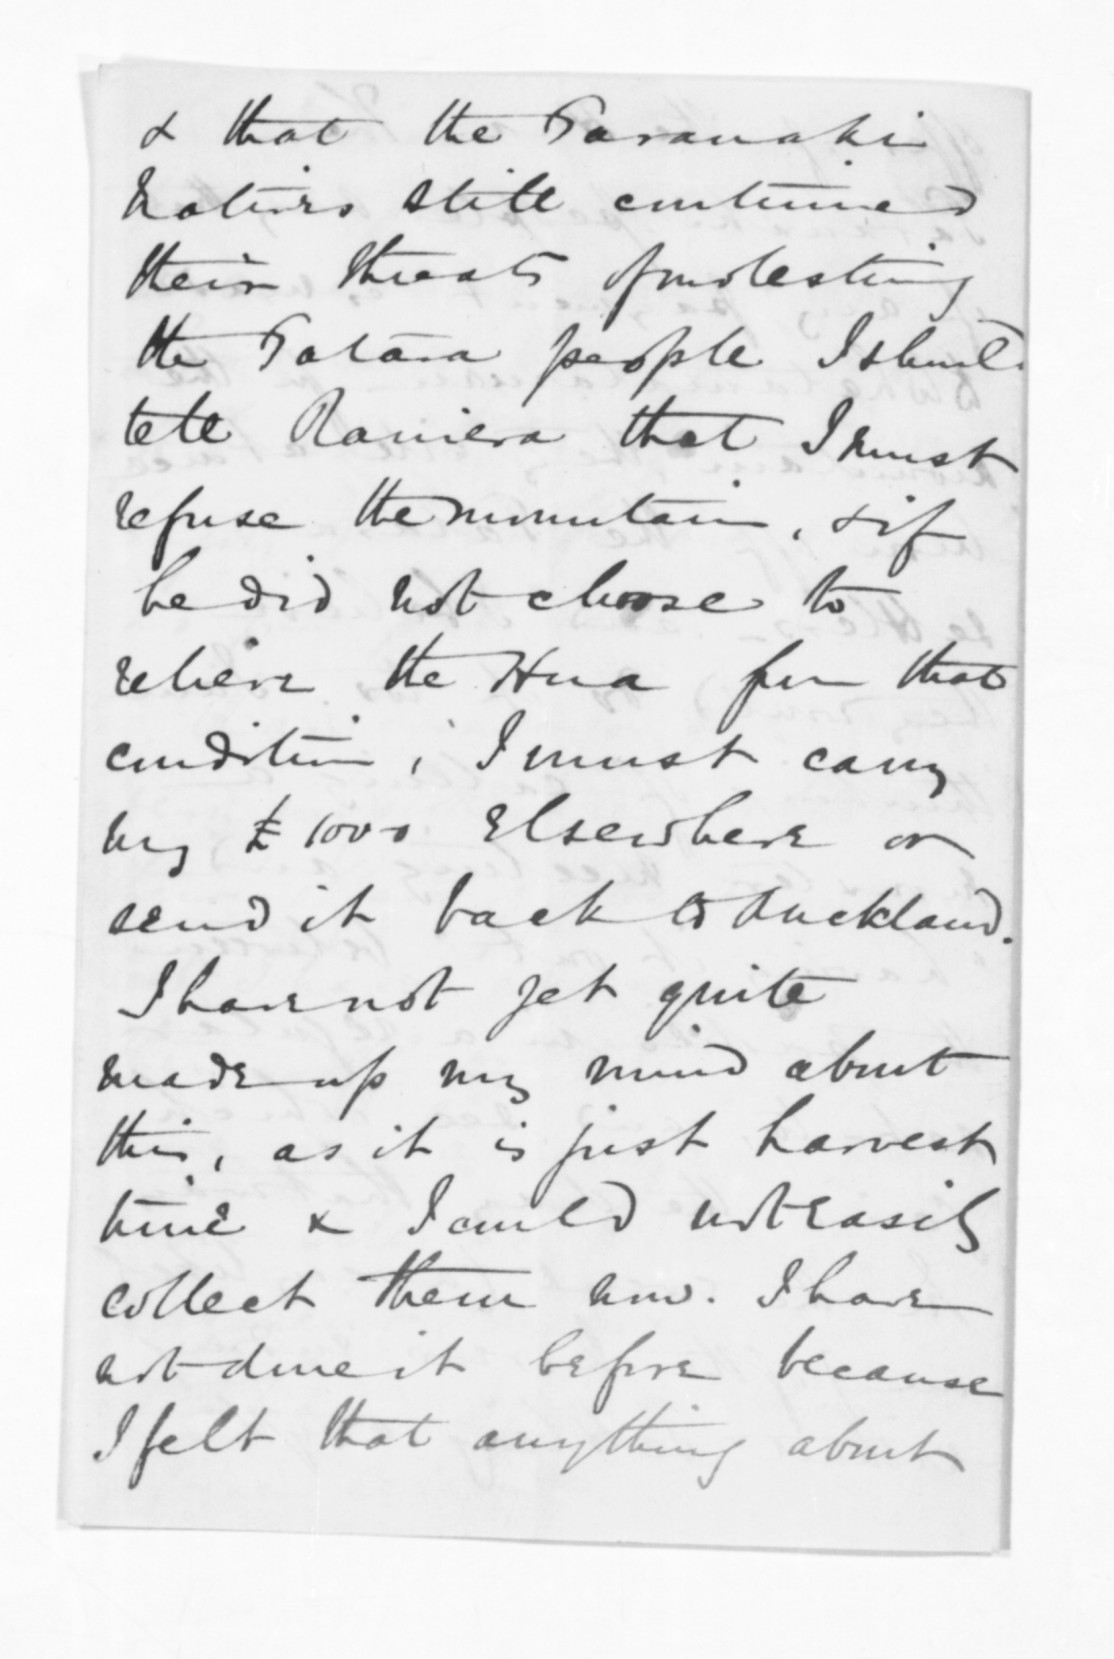 & that the Taranaki
Natives still continued
their threats of molesting
the Tatara people I should
tell Raniera that I must
refuse the mountain, & if
he did not choose to
relieve the Hua from that
condition, I must carry
my £1000 elsewhere or
send it back to Auckland.
I have not yet quite
made up my mind about
this, as it is just harvest
time & I could not easily
collect them now. I have
not done it before because
I felt that anything about